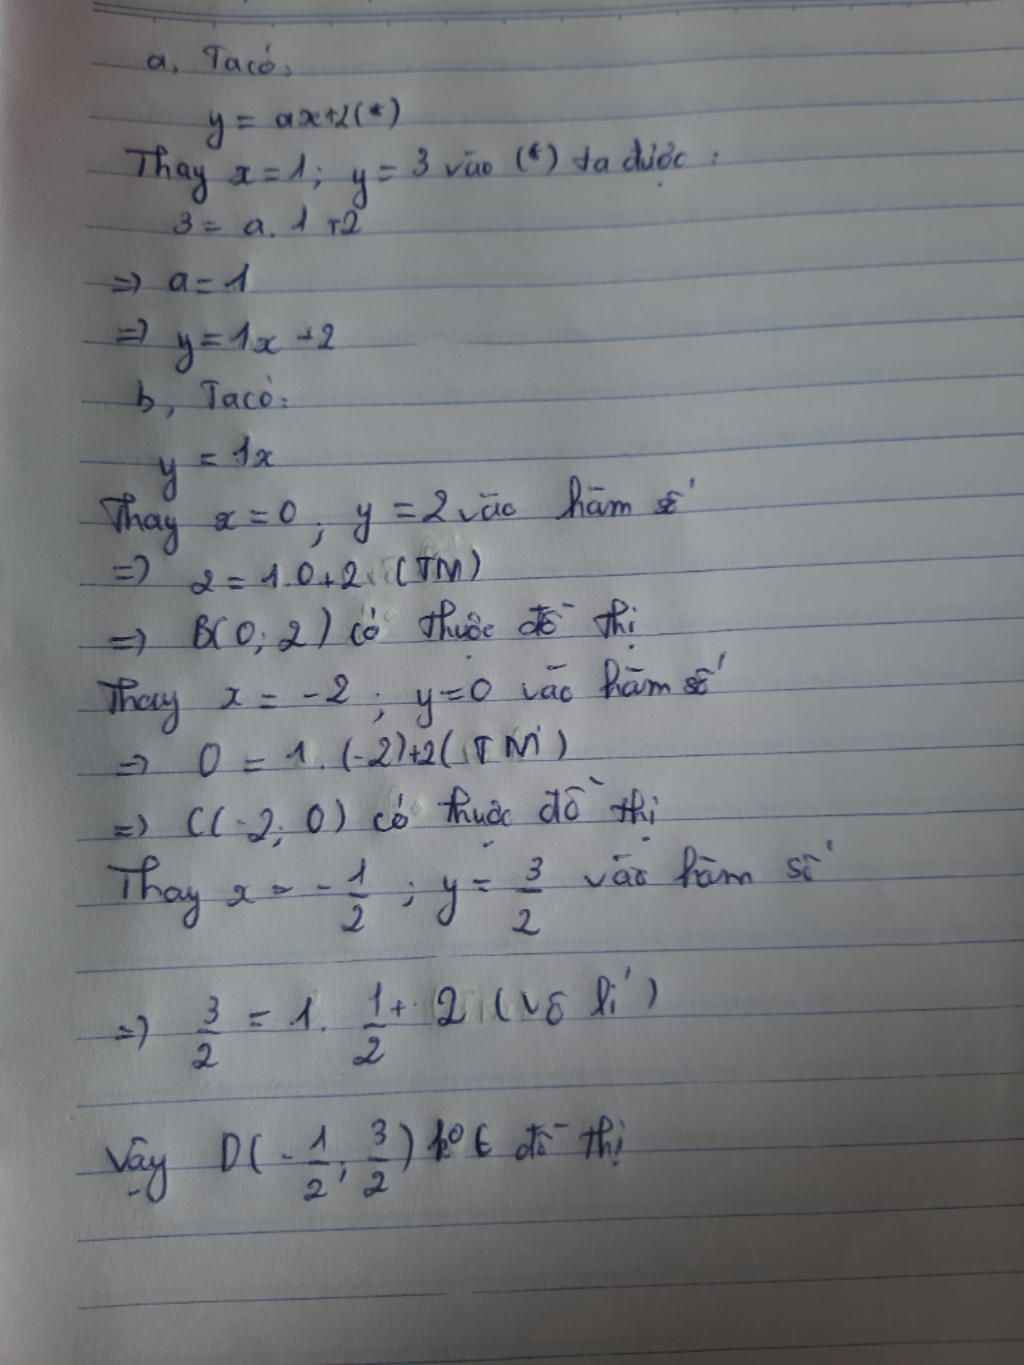 a, Ta có:
y = ax+2(*)
Thay x=1; y=3 vào (*) ta được:
3 = a. 1 +2
=> a=1
=> y=1x +2
b, Ta có:
y = 1x
Thay x=0; y=2 vào hàm số
=> 2 = 1.0+2 (TM)
=> B(0; 2) có thuộc đồ thị
Thay x = -2; y=0 vào hàm số
=> 0 = 1. (-2)+2 (TM)
=> C(-2; 0) có thuộc đồ thị
Thay x = -1/2; y = 3/2 vào hàm số
=> 3/2 = 1. 1/2 + 2 (vô lí)
Vậy D(-1/2; 3/2) ko € đồ thị